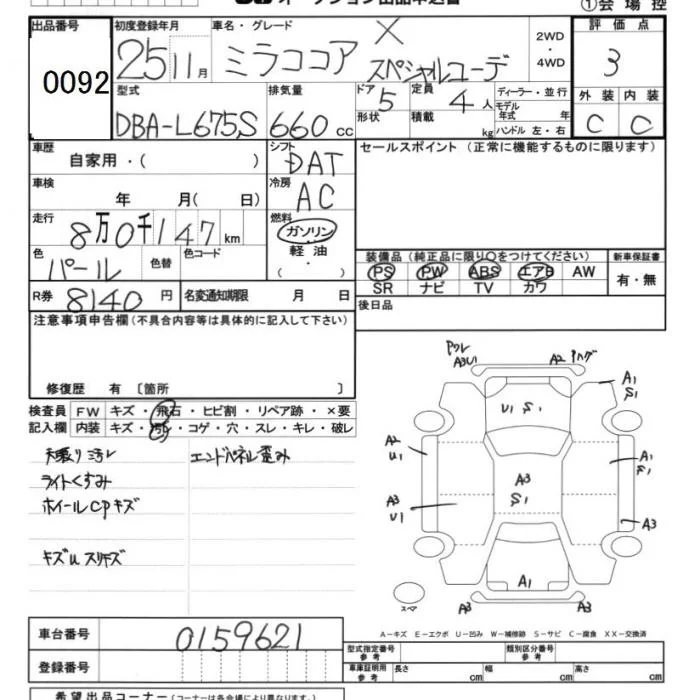 オークション出品申込書
①会場控
出品番号 初度登録年月 車名・グレード 評価点
0092 25 11月 ミラココア X スペシャルコーデ 2WD・4WD 3
型式 排気量 ドア 5 定員 4人 ディーラー・並行 外装 内装
DBA-L675S 660cc 形状 積載 kg モデル年式 年 ハンドル 左・右 C C
車歴 シフト セールスポイント (正常に機能するものに限ります)
自家用・( ) DAT
車検 冷房
年 月( 日) AC
走行 燃料
8万0千147km ガソリン
色 色替 色コード 軽油 装備品(純正品に限り○をつけてください) 新車保証書
パール ( ・ ) PS PW ABS エアB AW 有・無
R券 8140円 名変通知期限 月 日 SR ナビ TV カワ
後日品
注意事項申告欄(不具合内容等は具体的に記入して下さい)
修復歴 有 〔箇所 〕
検査員 FW キズ・飛石・ヒビ割・リペア跡・×要
記入欄 内装 キズ・汚れ・コゲ・穴・スレ・キレ・破レ
天張り汚レ エンドパネル歪み
ライトくすみ
ホイールCPキズ
キズUスリキズ
A3U1 A2
A1
U1 S1 S1
A2 A1
U1
A3 A3
U1 S1
A3
A1
スペア A3 A3
A-キズ E-エクボ U-凹み W-補修跡 S-サビ C-腐食 XX-交換済
車台番号 0159621
型式指定番号 参考 類別区分番号 参考
登録番号
車庫証明用 参考 長さ cm 幅 cm 高さ cm
希望出品コーナー(コーナーは各会場により異なります)